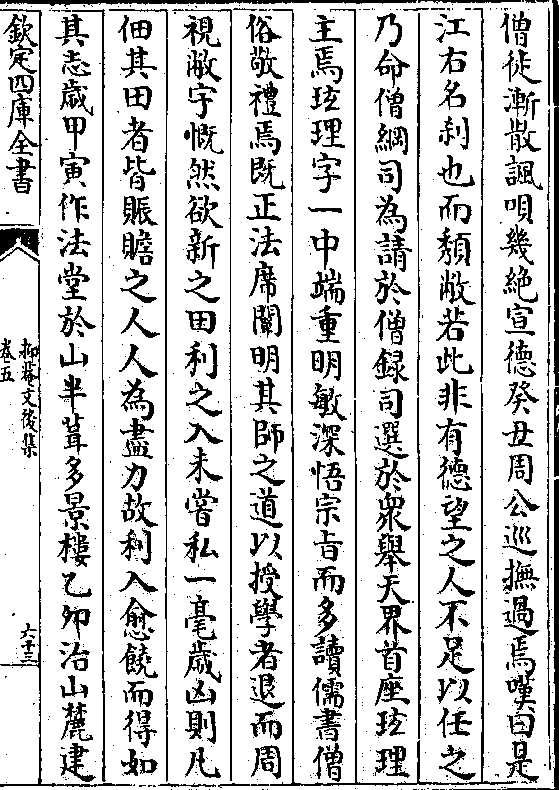 僧徒漸散諷唄幾絶宣德癸丑周公巡撫過焉嘆曰是
江右名刹也而頽敝若此非有德望之人不足以任之
乃命僧綱司為請於僧録司選於衆舉天界首座玹理
主焉玹理字一中端重明敏深悟宗㫖而多讀儒書僧
俗敬禮焉既正法席闡明其師之道以授學者退而周
視敝宇慨然欲新之田利之入未嘗私一毫歲凶則凡
佃其田者皆賑贍之人人為盡力故利入愈饒而得如
其志歲甲寅作法堂於山半葺多景樓乙夘治山麓建
欽定四庫全書
抑菴文後集
卷五
六十三